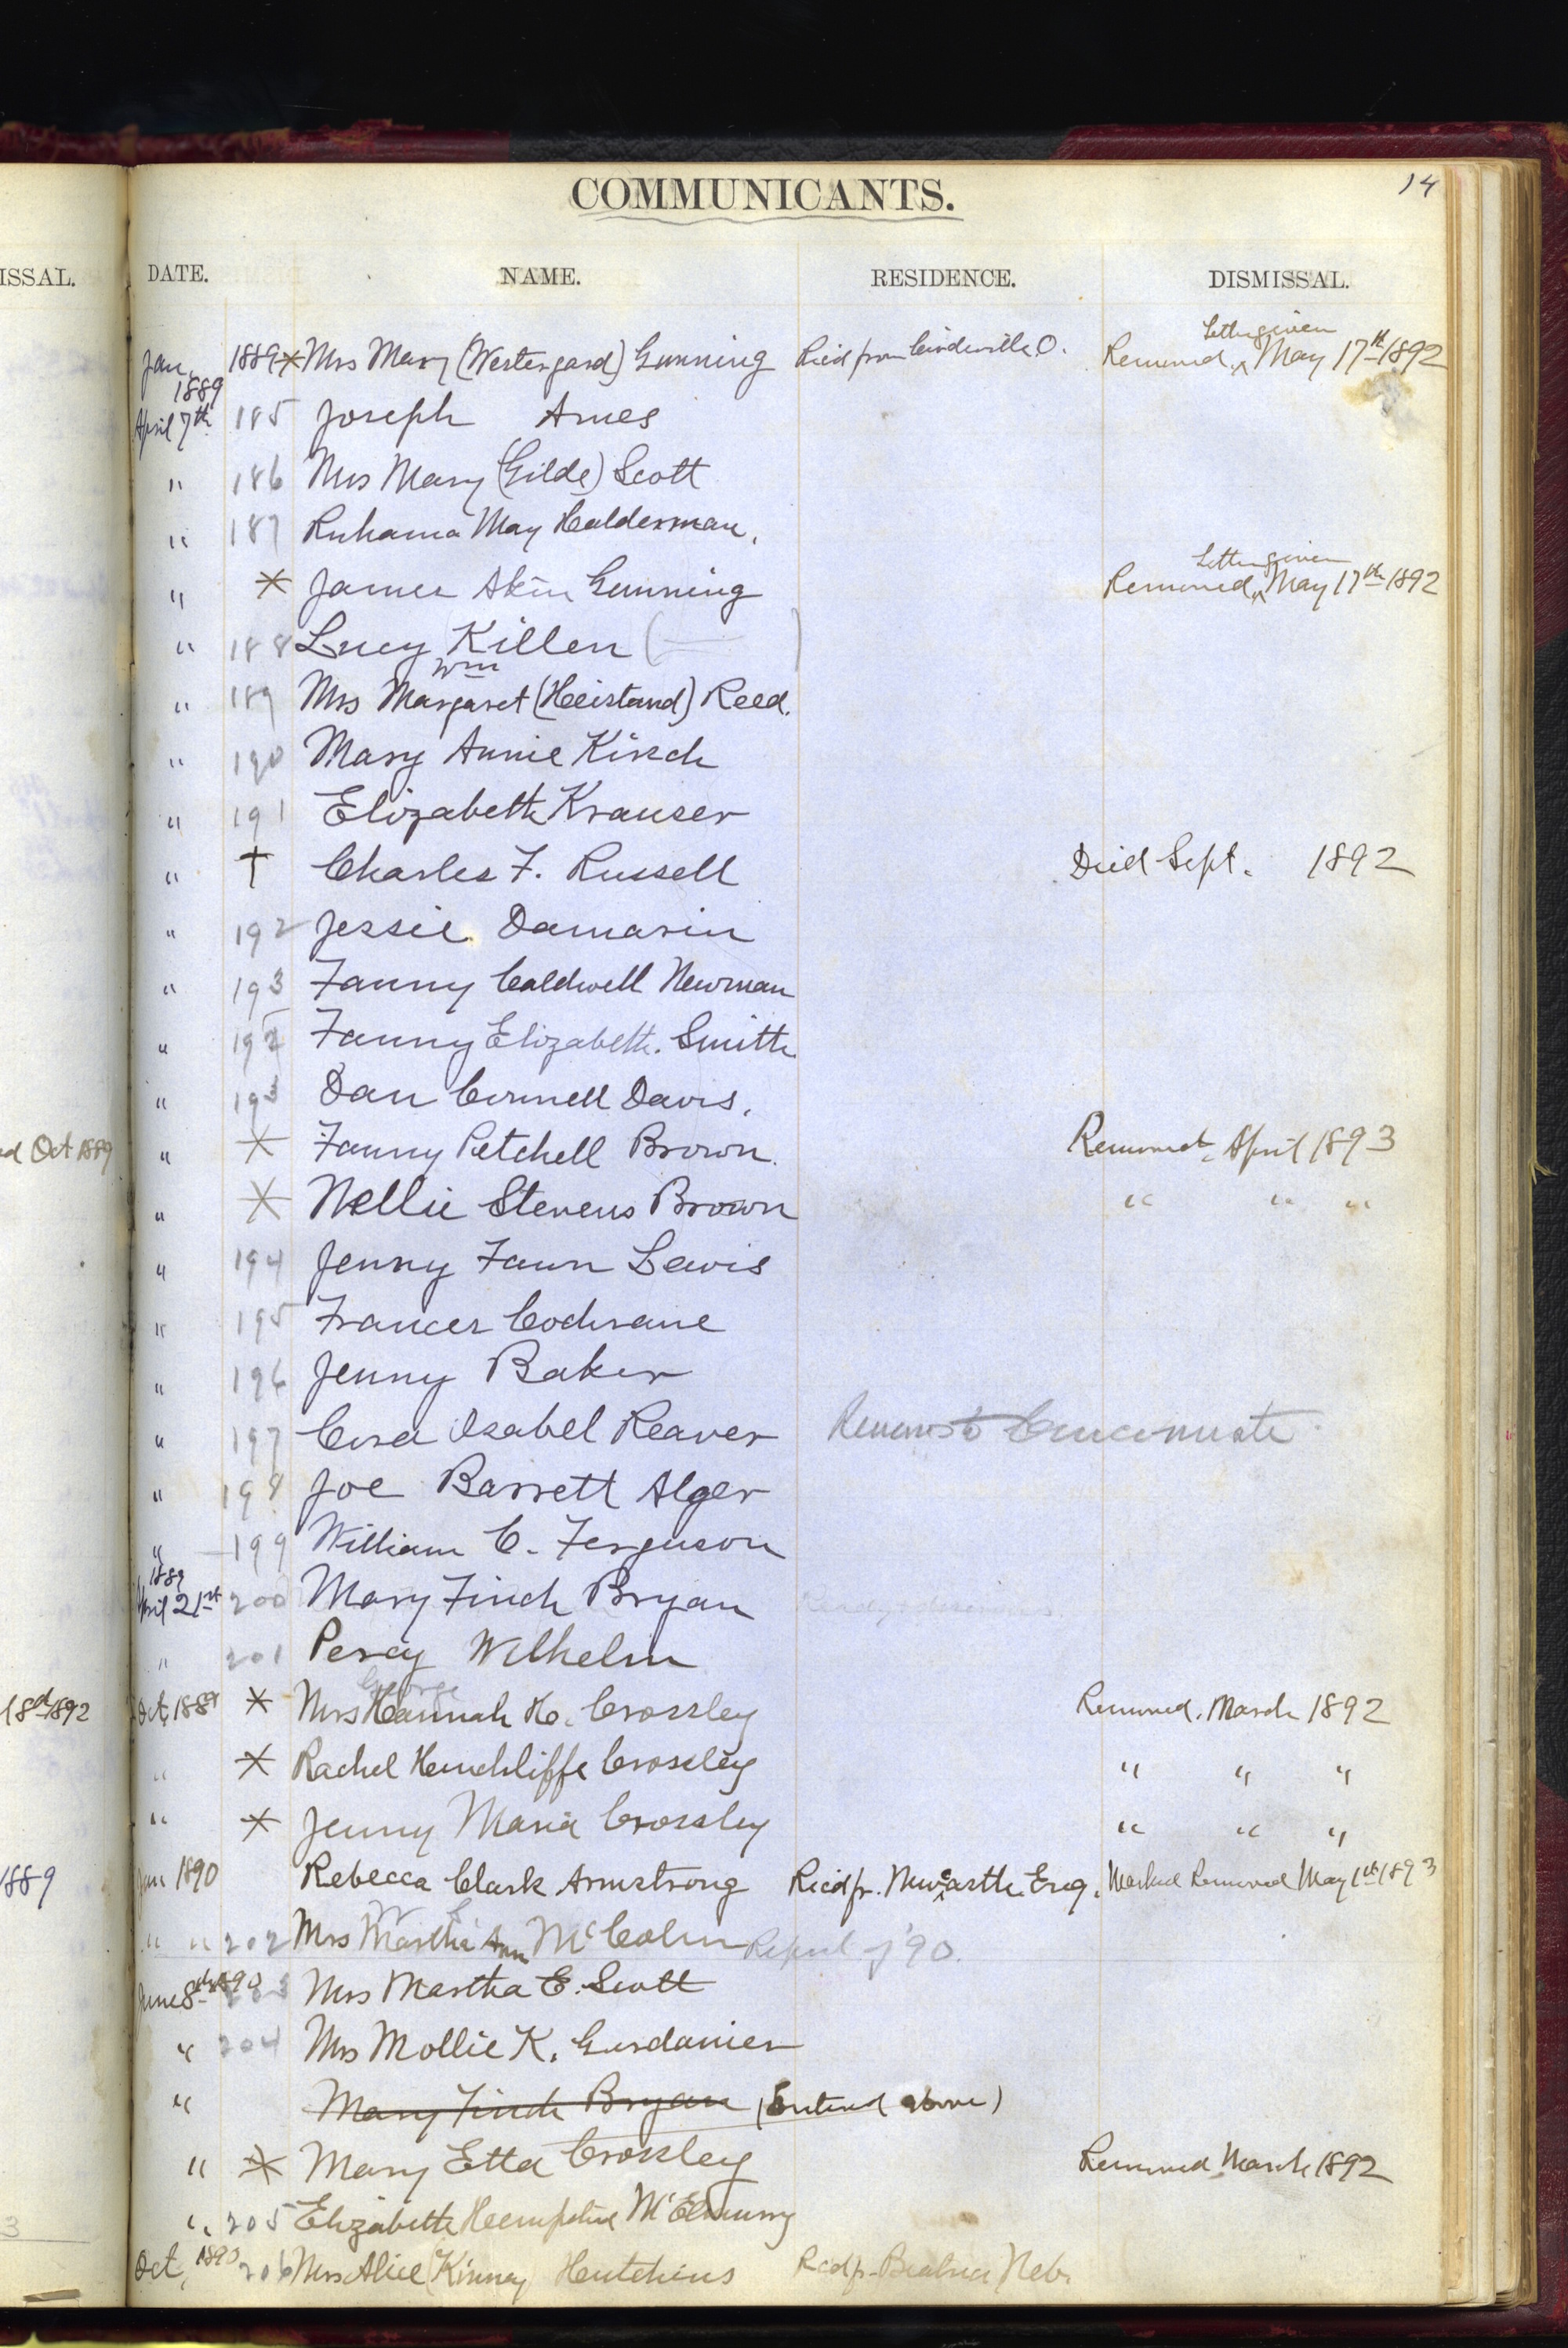 COMMUNICANTS. 14
ISSAL. DATE. NAME. RESIDENCE. DISMISSAL.
Letter given
Jan. 1889 * Mrs Mary (Westergard) Gunning Rec'd from Circleville O. Removed, ^ May 17th 1892
1889
April 7th 185 Joseph Ames
" 186 Mrs Mary (Gilde) Scott
" 187 Ruhama May Halderman.
Letter given
" * James Akin Gunning Removed, ^ May 17th 1892
" 188 Lucy Killen ( )
Wm
" 189 Mrs Margaret (Heistand) Reed.
" 190 Mary Annie Kirsch
" 191 Elizabeth Krauser
" † Charles F. Russell Died Sept. 1892
" 192 Jessie Damarin
" 193 Fanny Caldwell Newman
" 192 Fanny Elizabeth. Smith
" 193 Dan Connell Davis.
Oct 1889 " * Fanny Petchell Brown. Removed, April 1893
" * Nellie Stevens Brown " " "
" 194 Jenny Fawn Lewis
" 195 Frances Cochrane
" 196 Jenny Baker
" 197 Cora Isabel Reaver Removed to Cincinnati
" 198 Joe Barrett Alger
" 199 William C. Ferguson
1889
April 21st 200 Mary Finch Bryan
" 201 Percy Wilhelm
George
1892 Oct. 1889 * Mrs Hannah H. Crossley Removed. March 1892
" * Rachel Hinchliffe Crossley " " "
" * Jenny Maria Crossley " " "
1889 Jan 1890 Rebecca Clark Armstrong Rec'd fr. Newcastle Eng. Marked Removed May 1st 1893
" " 202 Mrs Martha Ann McColm '90.
June 8th 1890 203 Mrs Martha E. Scott
" 204 Mrs Mollie K. Gurdanier
" Mary Finch Bryan (Entered above)
" * Mary Etta Crossley Removed March 1892
3 " 205 Elizabeth Hempstead McElhenny
Oct, 1890 206 Mrs Alice (Kinney Hutchins Recd fr. Beatrice Neb.